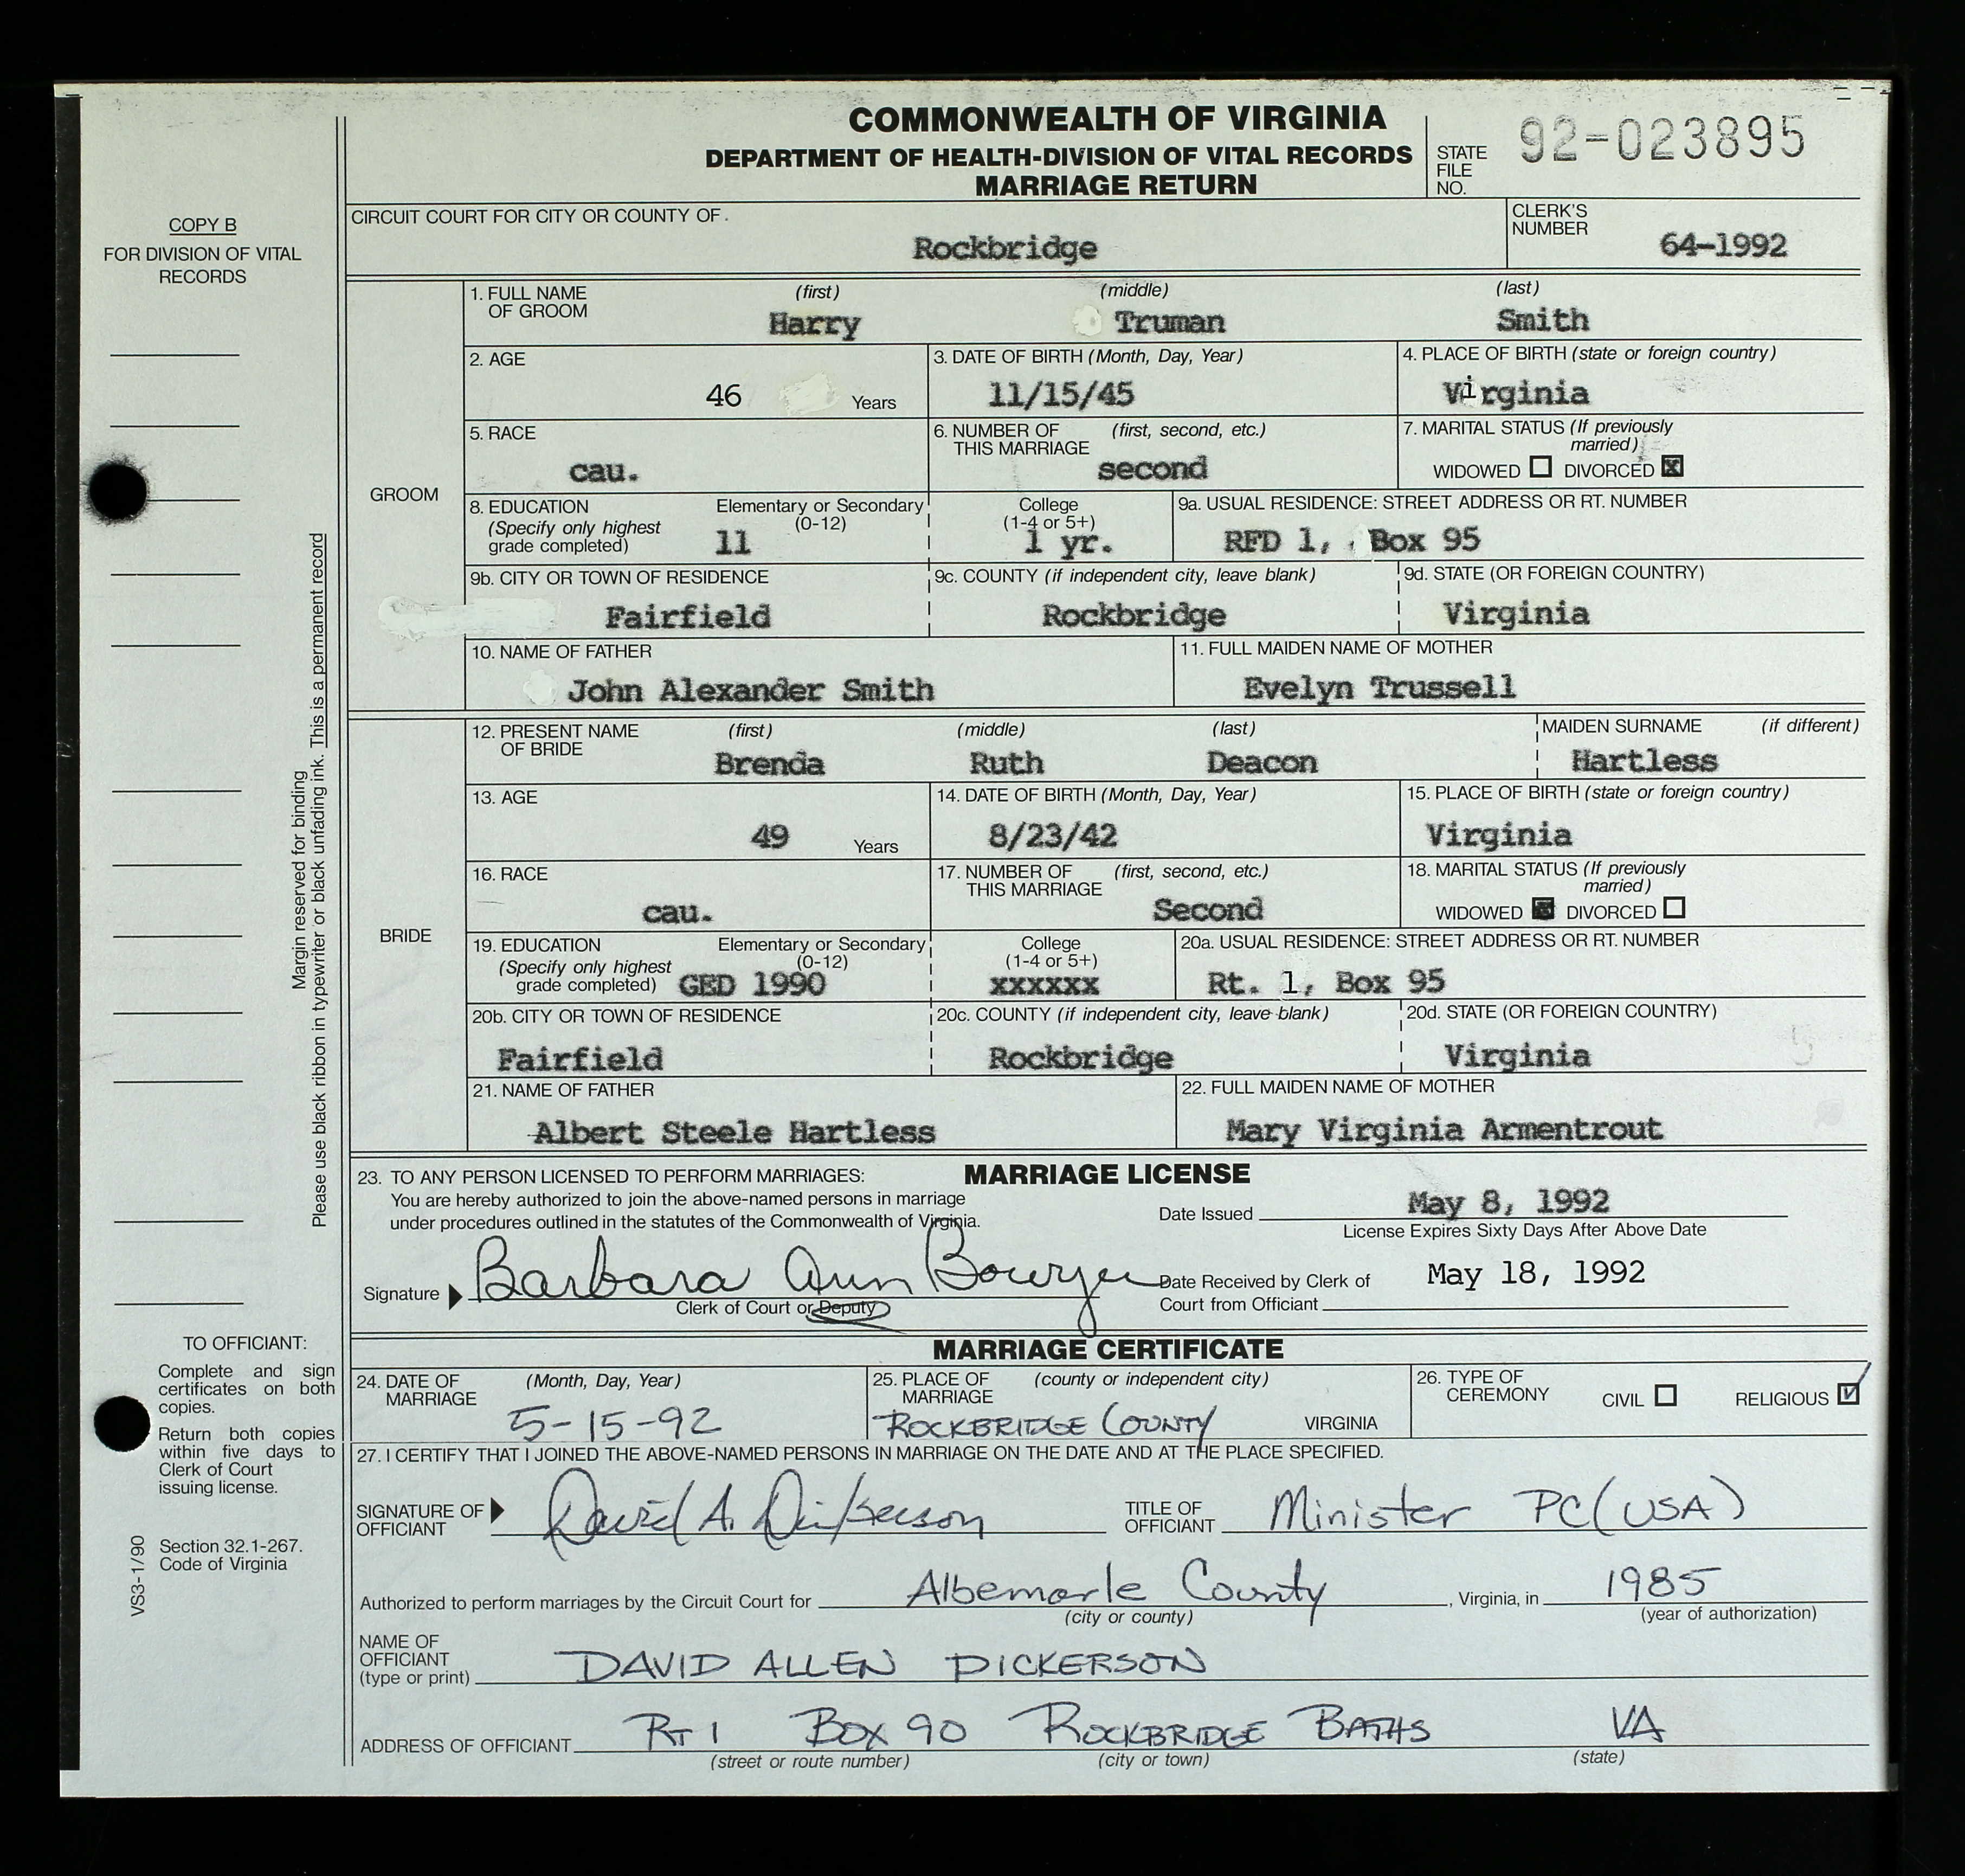 COMMONWEALTH OF VIRGINIA
DEPARTMENT OF HEALTH-DIVISION OF VITAL RECORDS
MARRIAGE RETURN
STATE FILE NO. 92-023895
COPY B
FOR DIVISION OF VITAL
RECORDS
CIRCUIT COURT FOR CITY OR COUNTY OF.
Rockbridge
CLERK'S NUMBER
64-1992
GROOM
1. FULL NAME OF GROOM (first) (middle) (last)
Harry Truman Smith
2. AGE 3. DATE OF BIRTH (Month, Day, Year) 4. PLACE OF BIRTH (state or foreign country)
46 Years 11/15/45 Virginia
5. RACE 6. NUMBER OF THIS MARRIAGE (first, second, etc.) 7. MARITAL STATUS (If previously married)
cau. second WIDOWED ☐ DIVORCED ☒
8. EDUCATION (Specify only highest grade completed) Elementary or Secondary (0-12) College (1-4 or 5+) 9a. USUAL RESIDENCE: STREET ADDRESS OR RT. NUMBER
11 1 yr. RFD 1, Box 95
9b. CITY OR TOWN OF RESIDENCE 9c. COUNTY (if independent city, leave blank) 9d. STATE (OR FOREIGN COUNTRY)
Fairfield Rockbridge Virginia
10. NAME OF FATHER 11. FULL MAIDEN NAME OF MOTHER
John Alexander Smith Evelyn Trussell
BRIDE
12. PRESENT NAME OF BRIDE (first) (middle) (last) MAIDEN SURNAME (if different)
Brenda Ruth Deacon Hartless
13. AGE 14. DATE OF BIRTH (Month, Day, Year) 15. PLACE OF BIRTH (state or foreign country)
49 Years 8/23/42 Virginia
16. RACE 17. NUMBER OF THIS MARRIAGE (first, second, etc.) 18. MARITAL STATUS (If previously married)
cau. Second WIDOWED ☒ DIVORCED ☐
19. EDUCATION (Specify only highest grade completed) Elementary or Secondary (0-12) College (1-4 or 5+) 20a. USUAL RESIDENCE: STREET ADDRESS OR RT. NUMBER
GED 1990 xxxxxx Rt. 1, Box 95
20b. CITY OR TOWN OF RESIDENCE 20c. COUNTY (if independent city, leave blank) 20d. STATE (OR FOREIGN COUNTRY)
Fairfield Rockbridge Virginia
21. NAME OF FATHER 22. FULL MAIDEN NAME OF MOTHER
Albert Steele Hartless Mary Virginia Armentrout
Margin reserved for binding
Please use black ribbon in typewriter or black unfading ink. This is a permanent record
23. TO ANY PERSON LICENSED TO PERFORM MARRIAGES: MARRIAGE LICENSE
You are hereby authorized to join the above-named persons in marriage
under procedures outlined in the statutes of the Commonwealth of Virginia.
Date Issued May 8, 1992
License Expires Sixty Days After Above Date
Signature Barbara Ann
Clerk of Court or Deputy
Date Received by Clerk of Court from Officiant May 18, 1992
MARRIAGE CERTIFICATE
24. DATE OF MARRIAGE (Month, Day, Year) 25. PLACE OF MARRIAGE (county or independent city) 26. TYPE OF CEREMONY CIVIL ☐ RELIGIOUS ☑
5-15-92 ROCKBRIDGE COUNTY VIRGINIA
27. I CERTIFY THAT I JOINED THE ABOVE-NAMED PERSONS IN MARRIAGE ON THE DATE AND AT THE PLACE SPECIFIED.
SIGNATURE OF OFFICIANT David A. Dickerson TITLE OF OFFICIANT Minister PC(USA)
Authorized to perform marriages by the Circuit Court for Albemarle County, Virginia, in 1985
(city or county) (year of authorization)
NAME OF OFFICIANT (type or print) DAVID ALLEN DICKERSON
ADDRESS OF OFFICIANT RT 1 BOX 90 ROCKBRIDGE BATHS VA
(street or route number) (city or town) (state)
TO OFFICIANT:
Complete and sign
certificates on both
copies.
Return both copies
within five days to
Clerk of Court
issuing license.
Section 32.1-267.
Code of Virginia
VS3-1/90